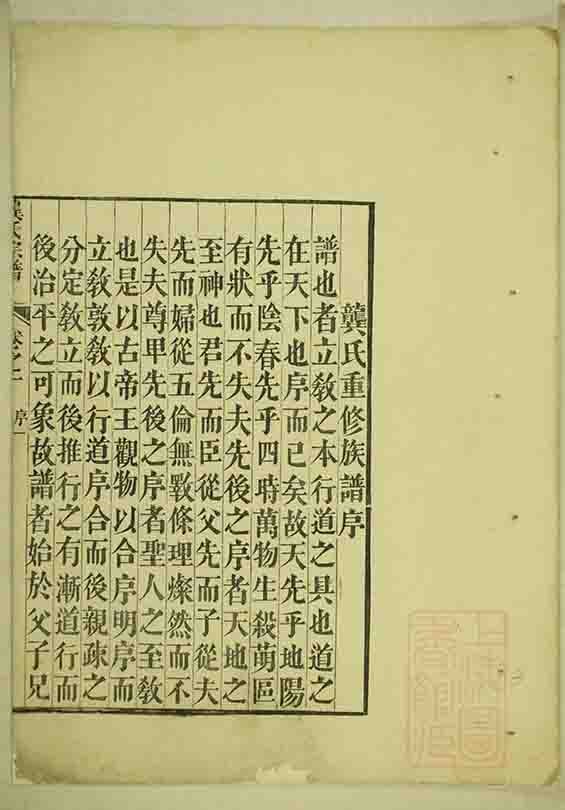 龔氏重修族譜序
譜也者立教之本行道之具也道之
在天下也序而已矣故天先乎地陽
先乎陰春先乎四時萬物生殺萌區
有狀而不失夫先後之序者天地之
至神也君先而臣從父先而子從夫
先而婦從五倫無斁條理燦然而不
失夫尊卑先後之序者聖人之至敎
也是以古帝王觀物以合序明序而
立敎敦敎以行道序合而後親疎之
分定敎立而後推行之有漸道行而
後治平之可象故譜者始於父子兄
氏宗譜 卷之一 序
上海圖書館藏